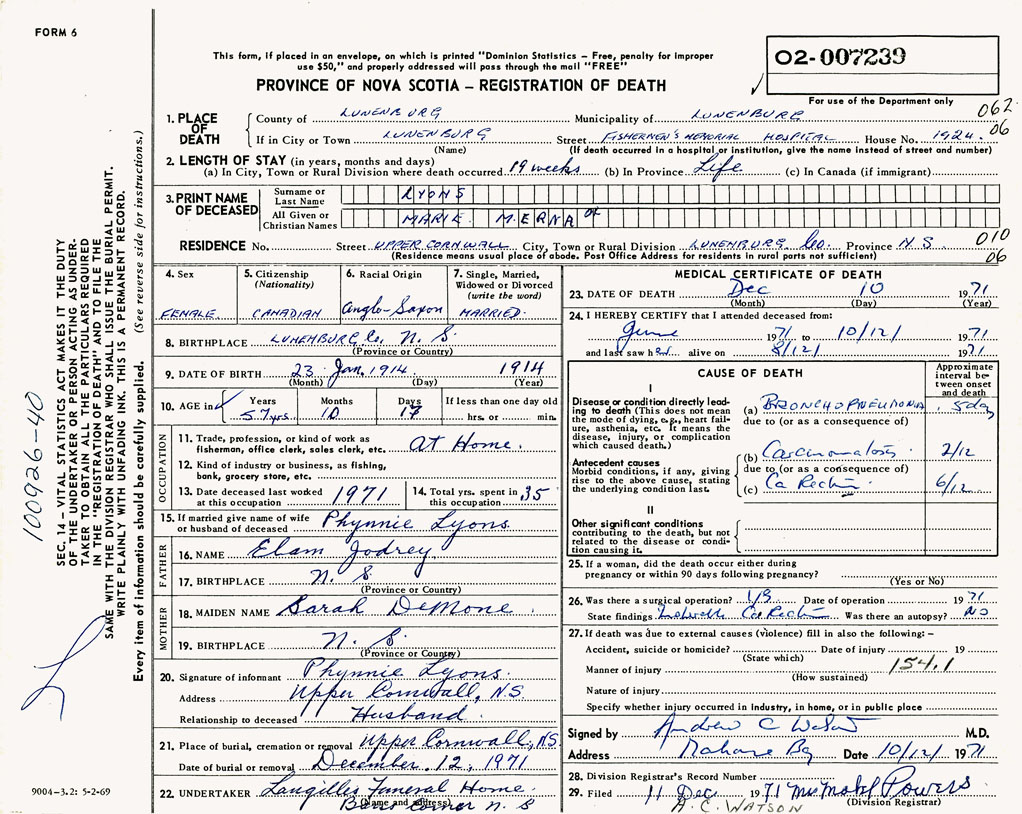 FORM 6
This form, if placed in an envelope, on which is printed "Dominion Statistics – Free, penalty for improper
use $50," and properly addressed will pass through the mail "FREE"
PROVINCE OF NOVA SCOTIA – REGISTRATION OF DEATH
02-007239
For use of the Department only
062
06
1. PLACE OF DEATH
County of LUNENBURG Municipality of LUNENBURG
If in City or Town LUNENBURG Street FISHERMEN'S MEMORIAL HOSPITAL House No. 1924
(Name) (If death occurred in a hospital or institution, give the name instead of street and number)
2. LENGTH OF STAY (in years, months and days)
(a) In City, Town or Rural Division where death occurred 19 weeks (b) In Province Life (c) In Canada (if immigrant)
3. PRINT NAME OF DECEASED
Surname or Last Name LYONS
All Given or Christian Names MARIE MERNA
RESIDENCE No. Street UPPER CORNWALL City, Town or Rural Division LUNENBURG Co. Province N.S.
(Residence means usual place of abode. Post Office Address for residents in rural parts not sufficient)
010
06
4. Sex
FEMALE
5. Citizenship
(Nationality)
CANADIAN
6. Racial Origin
Anglo-Saxon
7. Single, Married,
Widowed or Divorced
(write the word)
MARRIED.
8. BIRTHPLACE LUNENBURG Co. N. S
(Province or Country)
9. DATE OF BIRTH 23 Jan. 1914 1914
(Month) (Day) (Year)
10. AGE in
Years Months Days If less than one day old
57 yrs. 10 17 hrs. or min.
OCCUPATION
11. Trade, profession, or kind of work as
fisherman, office clerk, sales clerk, etc. At Home.
12. Kind of industry or business, as fishing,
bank, grocery store, etc.
13. Date deceased last worked
at this occupation 1971
14. Total yrs. spent in
this occupation 35
15. If married give name of wife
or husband of deceased Phynnie Lyons
FATHER
16. NAME Elam Jodrey
17. BIRTHPLACE N. S.
(Province or Country)
MOTHER
18. MAIDEN NAME Sarah DeMone
19. BIRTHPLACE N. S.
(Province or Country)
20. Signature of informant Phynnie Lyons.
Address Upper Cornwall, N.S.
Relationship to deceased Husband.
21. Place of burial, cremation or removal Upper Cornwall, NS
Date of burial or removal December. 12, 1971
22. UNDERTAKER Langilles Funeral Home.
(Name and address)
Corner N. S
MEDICAL CERTIFICATE OF DEATH
23. DATE OF DEATH Dec 10 1971
(Month) (Day) (Year)
24. I HEREBY CERTIFY that I attended deceased from:
June 1971 to 10/12/ 1971
and last saw her alive on 8/12/ 1971
CAUSE OF DEATH
Approximate
interval be-
tween onset
and death
I
Disease or condition directly lead-
ing to death (This does not mean
the mode of dying, e.g., heart fail-
ure, asthenia, etc. It means the
disease, injury, or complication
which caused death.)
(a) BRONCHOPNEUMONIA 5 day
due to (or as a consequence of)
Antecedent causes
Morbid conditions, if any, giving
rise to the above cause, stating
the underlying condition last.
(b) Carcinomatosis 2/12
due to (or as a consequence of)
(c) Ca Rectum 6/12
II
Other significant conditions
contributing to the death, but not
related to the disease or condi-
tion causing it.
25. If a woman, did the death occur either during
pregnancy or within 90 days following pregnancy?
(Yes or No)
26. Was there a surgical operation? Date of operation 1971
State findings Ca Rectum Was there an autopsy? No
27. If death was due to external causes (violence) fill in also the following: –
Accident, suicide or homicide? Date of injury 19
(State which)
Manner of injury 154.1
(How sustained)
Nature of injury
Specify whether injury occurred in industry, in home, or in public place
Signed by Andrew C Watson M.D.
Address Mahone Bay Date 10/12/ 1971
28. Division Registrar's Record Number
29. Filed 11 Dec 1971 Mrs Mabel Powers
A. C. WATSON (Division Registrar)
9004-3.2: 5-2-69
100926-40
SEC. 14 – VITAL STATISTICS ACT MAKES IT THE DUTY
OF THE UNDERTAKER OR PERSON ACTING AS UNDER-
TAKER TO OBTAIN ALL THE PARTICULARS REQUIRED
IN THE "REGISTRATION OF DEATH" AND TO FILE THE
SAME WITH THE DIVISION REGISTRAR WHO SHALL ISSUE THE BURIAL PERMIT.
WRITE PLAINLY WITH UNFADING INK. THIS IS A PERMANENT RECORD.
Every item of information should be carefully supplied. (See reverse side for instructions.)